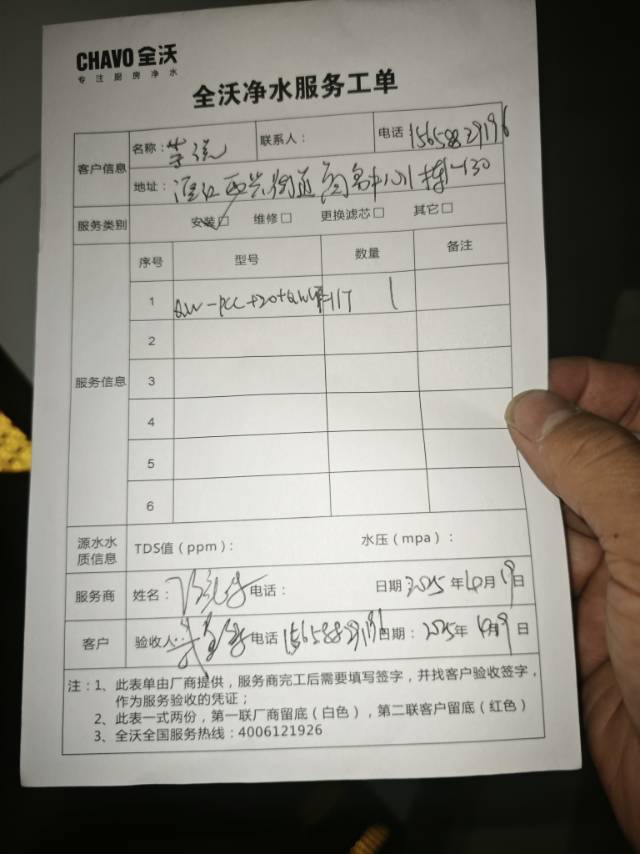 CHAVO 全沃
专注厨房净水
全沃净水服务工单
客户信息
名称：
联系人：
电话 15658829196
地址：滨江西兴街道
服务类别
安装□ 维修□ 更换滤芯□ 其它□
服务信息
序号 型号 数量 备注
1 1
2
3
4
5
6
源水水质信息
TDS值（ppm）： 水压（mpa）：
服务商 姓名： 电话： 日期 2025年4月19日
客户 验收人： 电话 15658829196 日期：2025年4月19日
注：1、此表单由厂商提供，服务商完工后需要填写签字，并找客户验收签字，
作为服务验收的凭证；
2、此表一式两份，第一联厂商留底（白色），第二联客户留底（红色）
3、全沃全国服务热线：4006121926